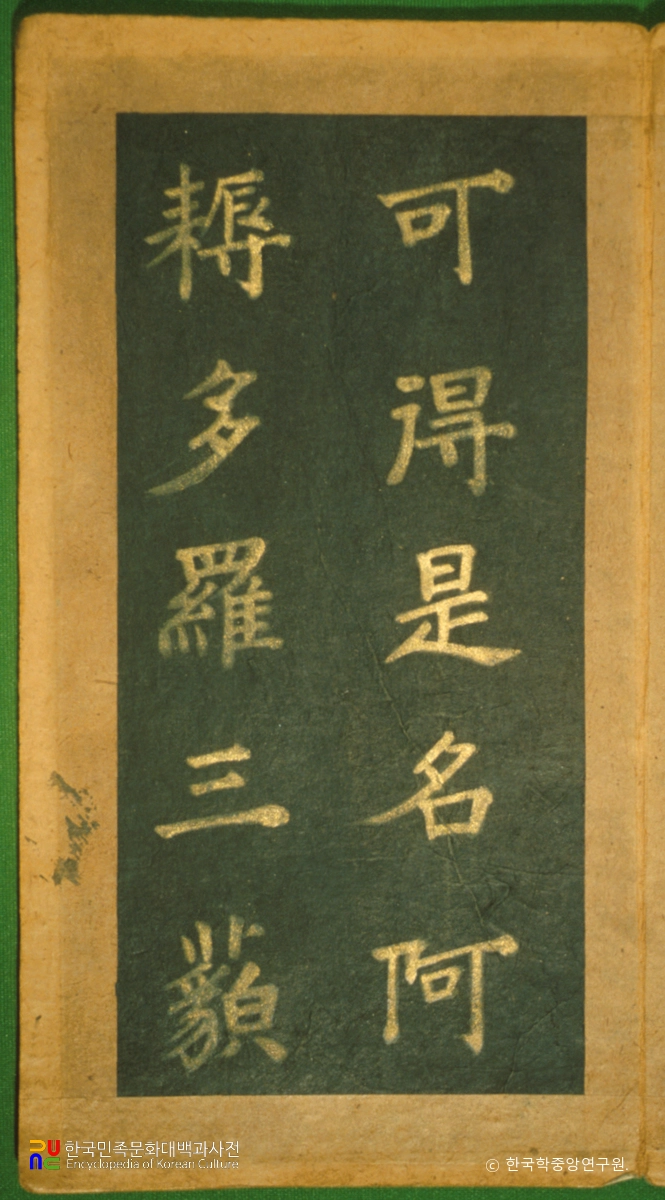 可得是名阿
耨多羅三藐
한국민족문화대백과사전
Encyclopedia of Korean Culture
ⓒ 한국학중앙연구원